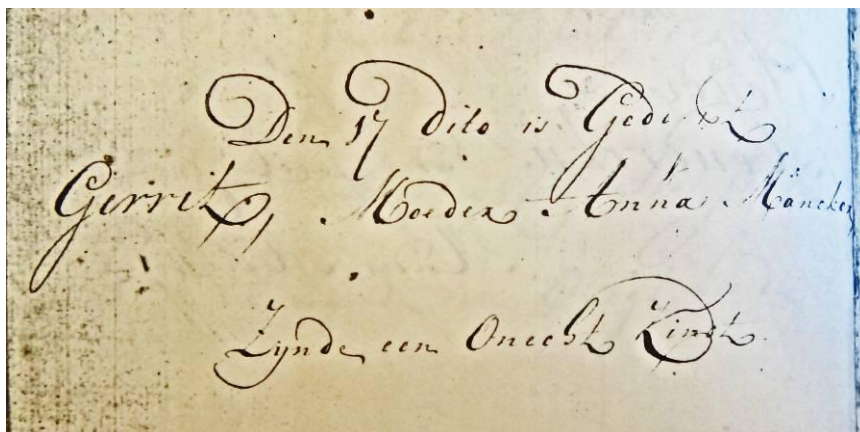 Den 17 dito is Gedopt
Gerrit, Moeder Anna Mäncken
Zynde een Onecht Kindt